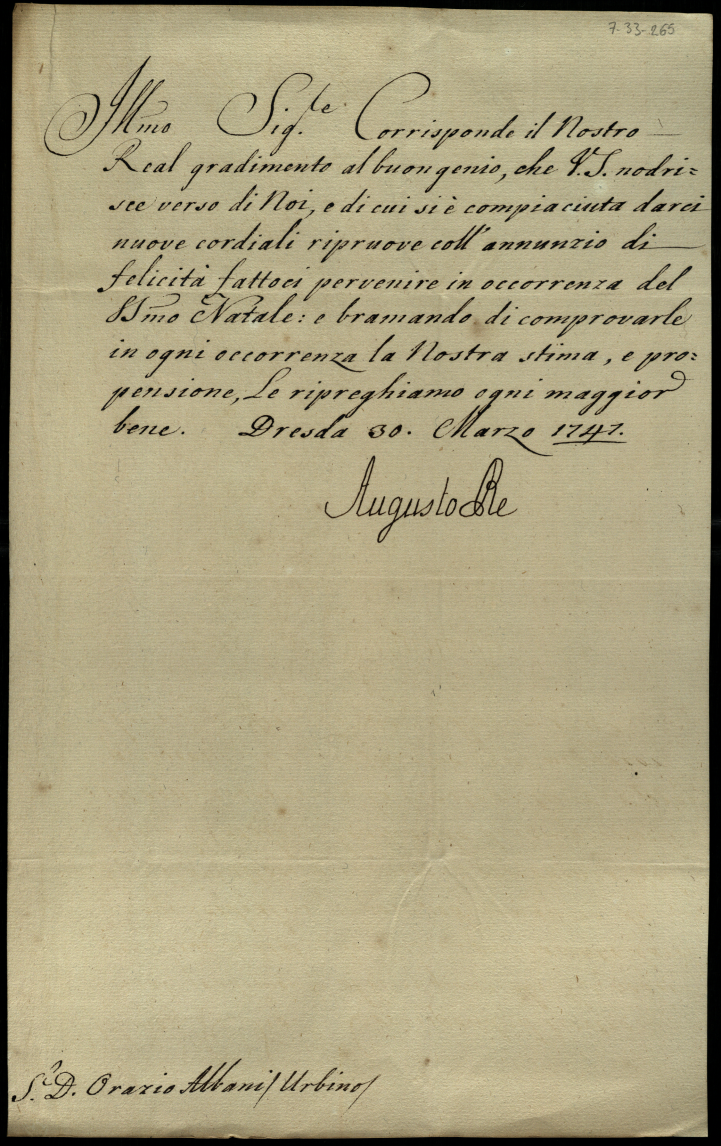 7-33-265
Illmo Sig.re Corrisponde il Nostro
Real gradimento al buon genio, che V.S. nodri=
sce verso di Noi, e di cui si è compiaciuta darci
nuove cordiali ripruove coll' annunzio di
felicità fattoci pervenire in occorrenza del
SSmo Natale: e bramando di comprovarle
in ogni occorrenza la Nostra stima, e pro=
pensione, Le ripreghiamo ogni maggior
bene. Dresda 30. Marzo 1747.
Augusto Re
S.e D. Orazio Albani / Urbino /